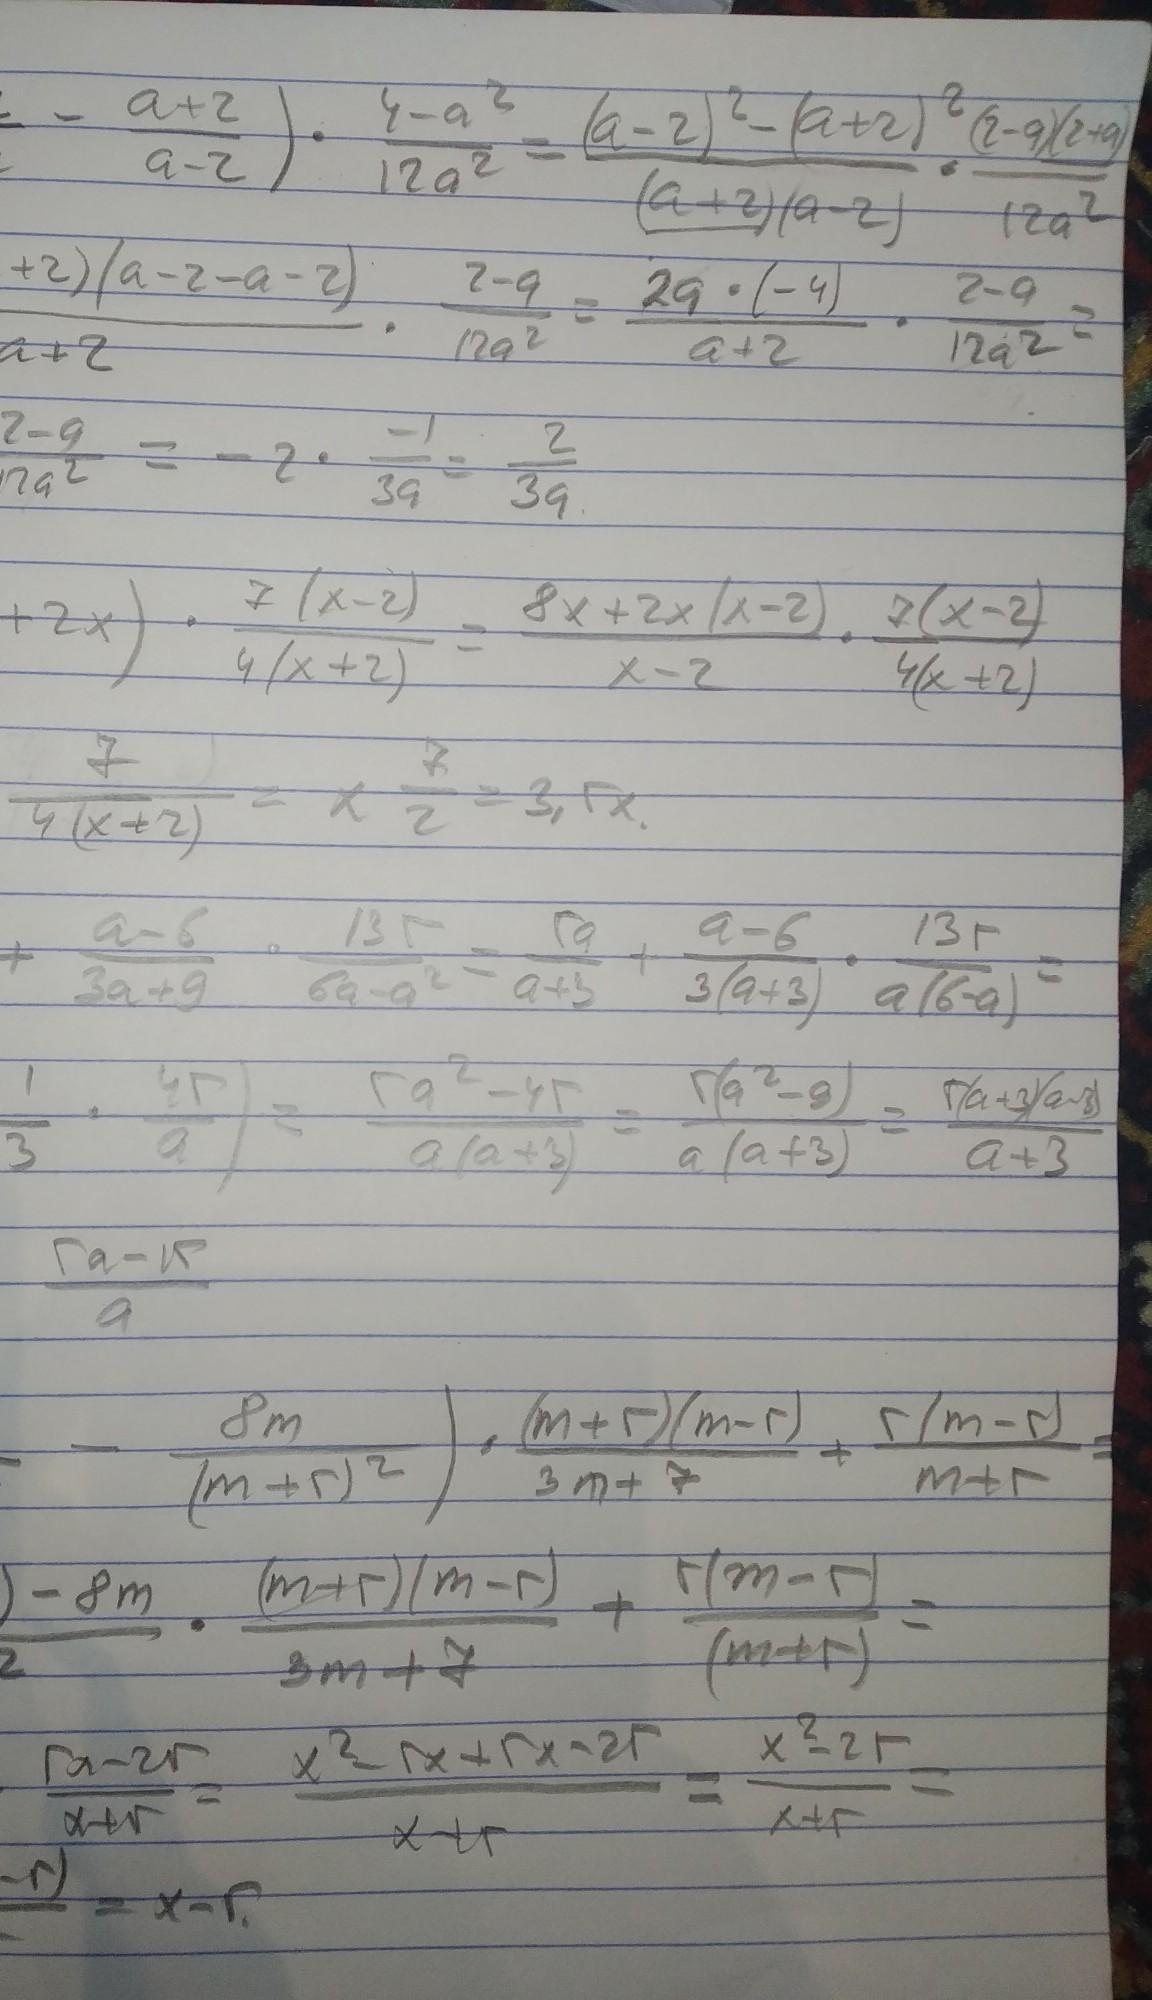 - (a+2)/(a-2)) · (4-a²)/(12a²) = ((a-2)²-(a+2)²)/((a+2)(a-2)) · ((2-a)(2+a))/(12a²)
+2)(a-2-a-2)/(a+2) · (2-a)/(12a²) = (2a·(-4))/(a+2) · (2-a)/(12a²) =
(2-a)/(12a²) = -2 · (-1)/(3a) = 2/(3a).
+2x) · (7(x-2))/(4(x+2)) = (8x+2x(x-2))/(x-2) · (7(x-2))/(4(x+2))
7/(4(x+2)) = x 7/2 = 3,5x.
+ (a-6)/(3a+9) · 135/(6a-a²) = 5a/(a+3) + (a-6)/(3(a+3)) · 135/(a(6-a)) =
1/3 · 45/a) = (5a²-45)/(a(a+3)) = (5(a²-9))/(a(a+3)) = (5(a+3)(a-3))/(a+3)
(5a-15)/a
- 8m/(m+5)²) · ((m+5)(m-5))/(3m+7) + (5(m-5))/(m+5) =
)-8m/2 · ((m+5)(m-5))/(3m+7) + (5(m-5))/((m+5)) =
(5a-25)/(x+5) = (x²-5x+5x-25)/(x+5) = (x²-25)/(x+5) =
-5) = x-5.